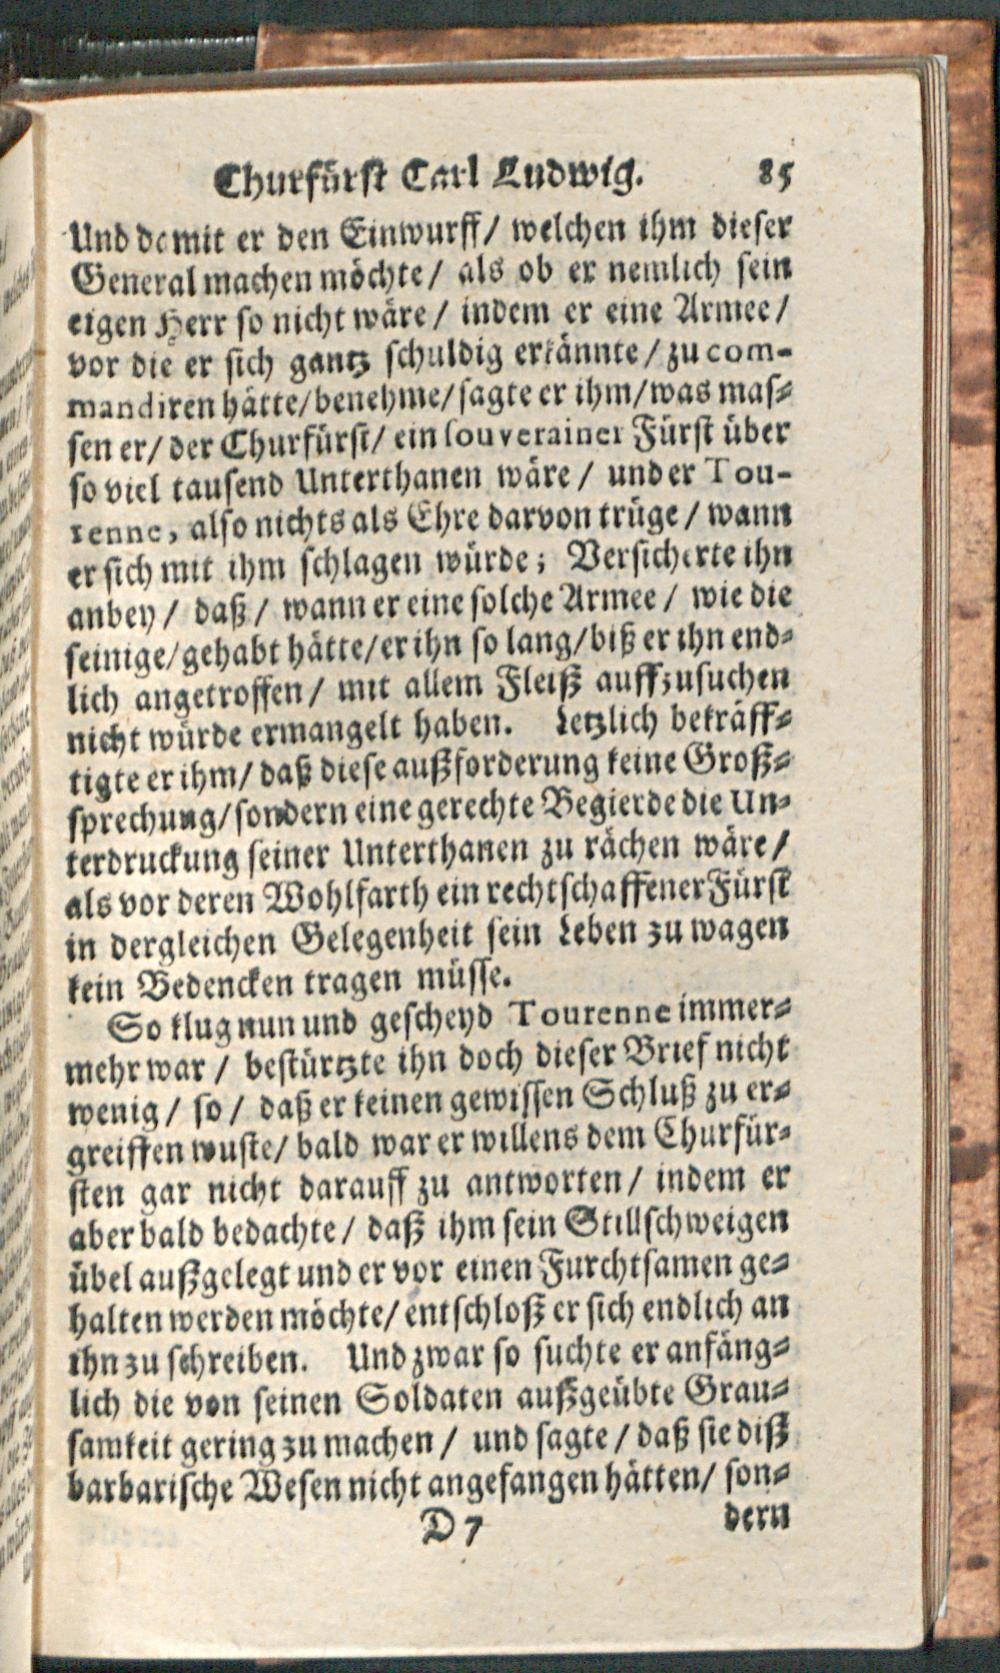 Churfürst Carl Ludwig. 85
Und damit er den Einwurff/ welchen ihm dieser
General machen möchte/ als ob er nemlich sein
eigen Herr so nicht wäre/ indem er eine Armee/
vor die er sich gantz schuldig erkännte/ zu com-
mandiren hätte/ benehme/ sagte er ihm/ was mas-
sen er/ der Churfürst/ ein souverainer Fürst über
so viel tausend Unterthanen wäre/ und er Tou-
renne, also nichts als Ehre darvon trüge/ wann
er sich mit ihm schlagen würde; Versicherte ihn
anbey/ daß/ wann er eine solche Armee/ wie die
seinige/ gehabt hätte/ er ihn so lang/ biß er ihn end-
lich angetroffen/ mit allem Fleiß auffzusuchen
nicht würde ermangelt haben. Letzlich bekräff-
tigte er ihm/ daß diese außforderung keine Groß-
sprechung/ sondern eine gerechte Begierde die Un-
terdruckung seiner Unterthanen zu rächen wäre/
als vor deren Wohlfarth ein rechtschaffener Fürst
in dergleichen Gelegenheit sein Leben zu wagen
kein Bedencken tragen müsse.
So klug nun und gescheyd Tourenne immer-
mehr war/ bestürtzte ihn doch dieser Brief nicht
wenig/ so/ daß er keinen gewissen Schluß zu er-
greiffen wuste/ bald war er willens dem Churfür-
sten gar nicht darauff zu antworten/ indem er
aber bald bedachte/ daß ihm sein Stillschweigen
übel außgelegt und er vor einen Furchtsamen ge-
halten werden möchte/ entschloß er sich endlich an
ihn zu schreiben. Und zwar so suchte er anfäng-
lich die von seinen Soldaten außgeübte Grau-
samkeit gering zu machen/ und sagte/ daß sie diß
barbarische Wesen nicht angefangen hätten/ son-
D 7 dern